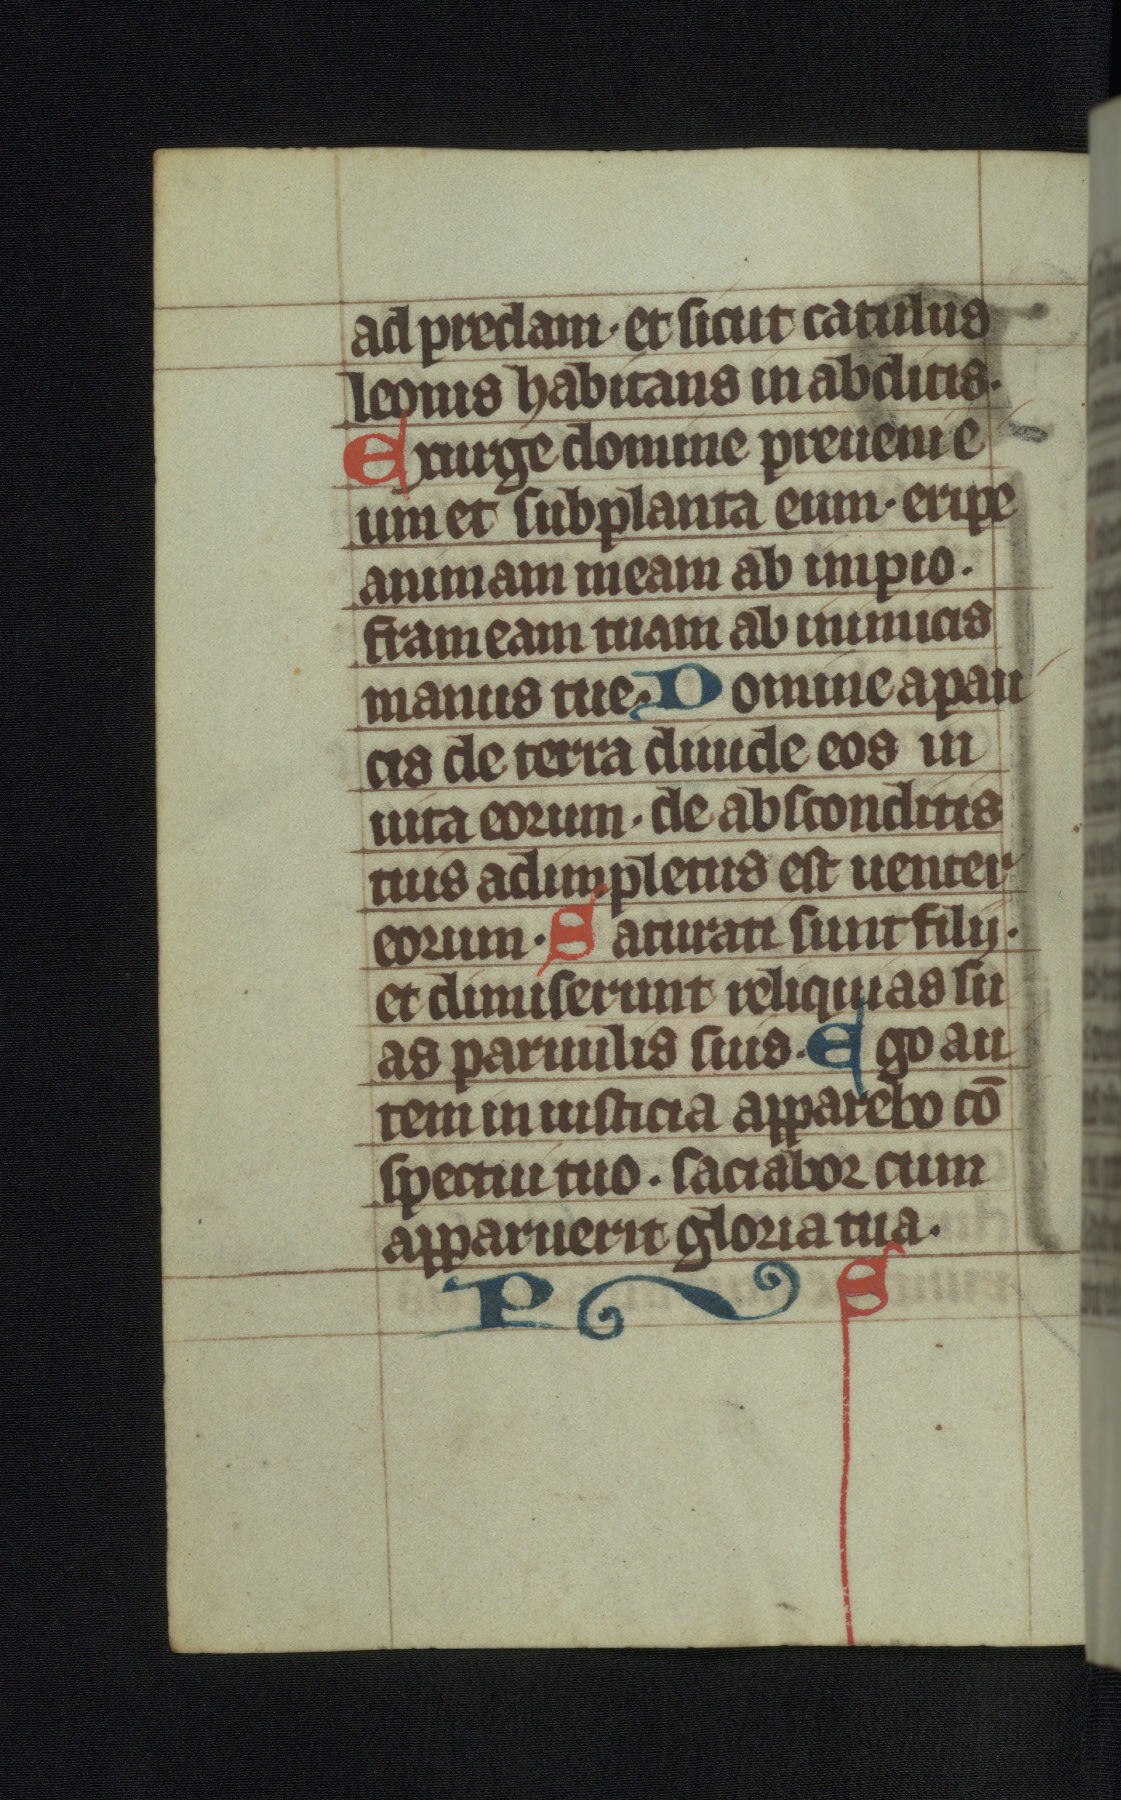 ad predam · et sicut catulus
leonis habitans in abditis ·
Exurge domine preueni e
um et subplanta eum · eripe
animam meam ab impio ·
frameam tuam ab inimicis
manus tue · Domine a pau
cis de terra diuide eos in
uita eorum · de absconditis
tuis adimpletus est uenter
eorum · Saturati sunt filij ·
et dimiserunt reliquias su
as paruulis suis · Ego au
tem in iusticia apparebo cō
spectui tuo · saciabor cum
apparuerit gloria tua ·
P S